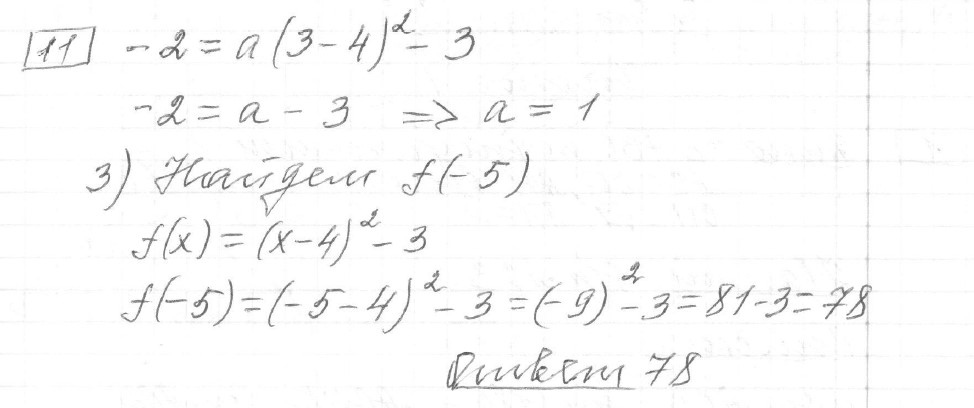 11 -2 = a(3-4)² - 3
-2 = a - 3 => a = 1
3) Найдем f(-5)
f(x) = (x-4)² - 3
f(-5) = (-5-4)² - 3 = (-9)² - 3 = 81 - 3 = 78
Ответ 78